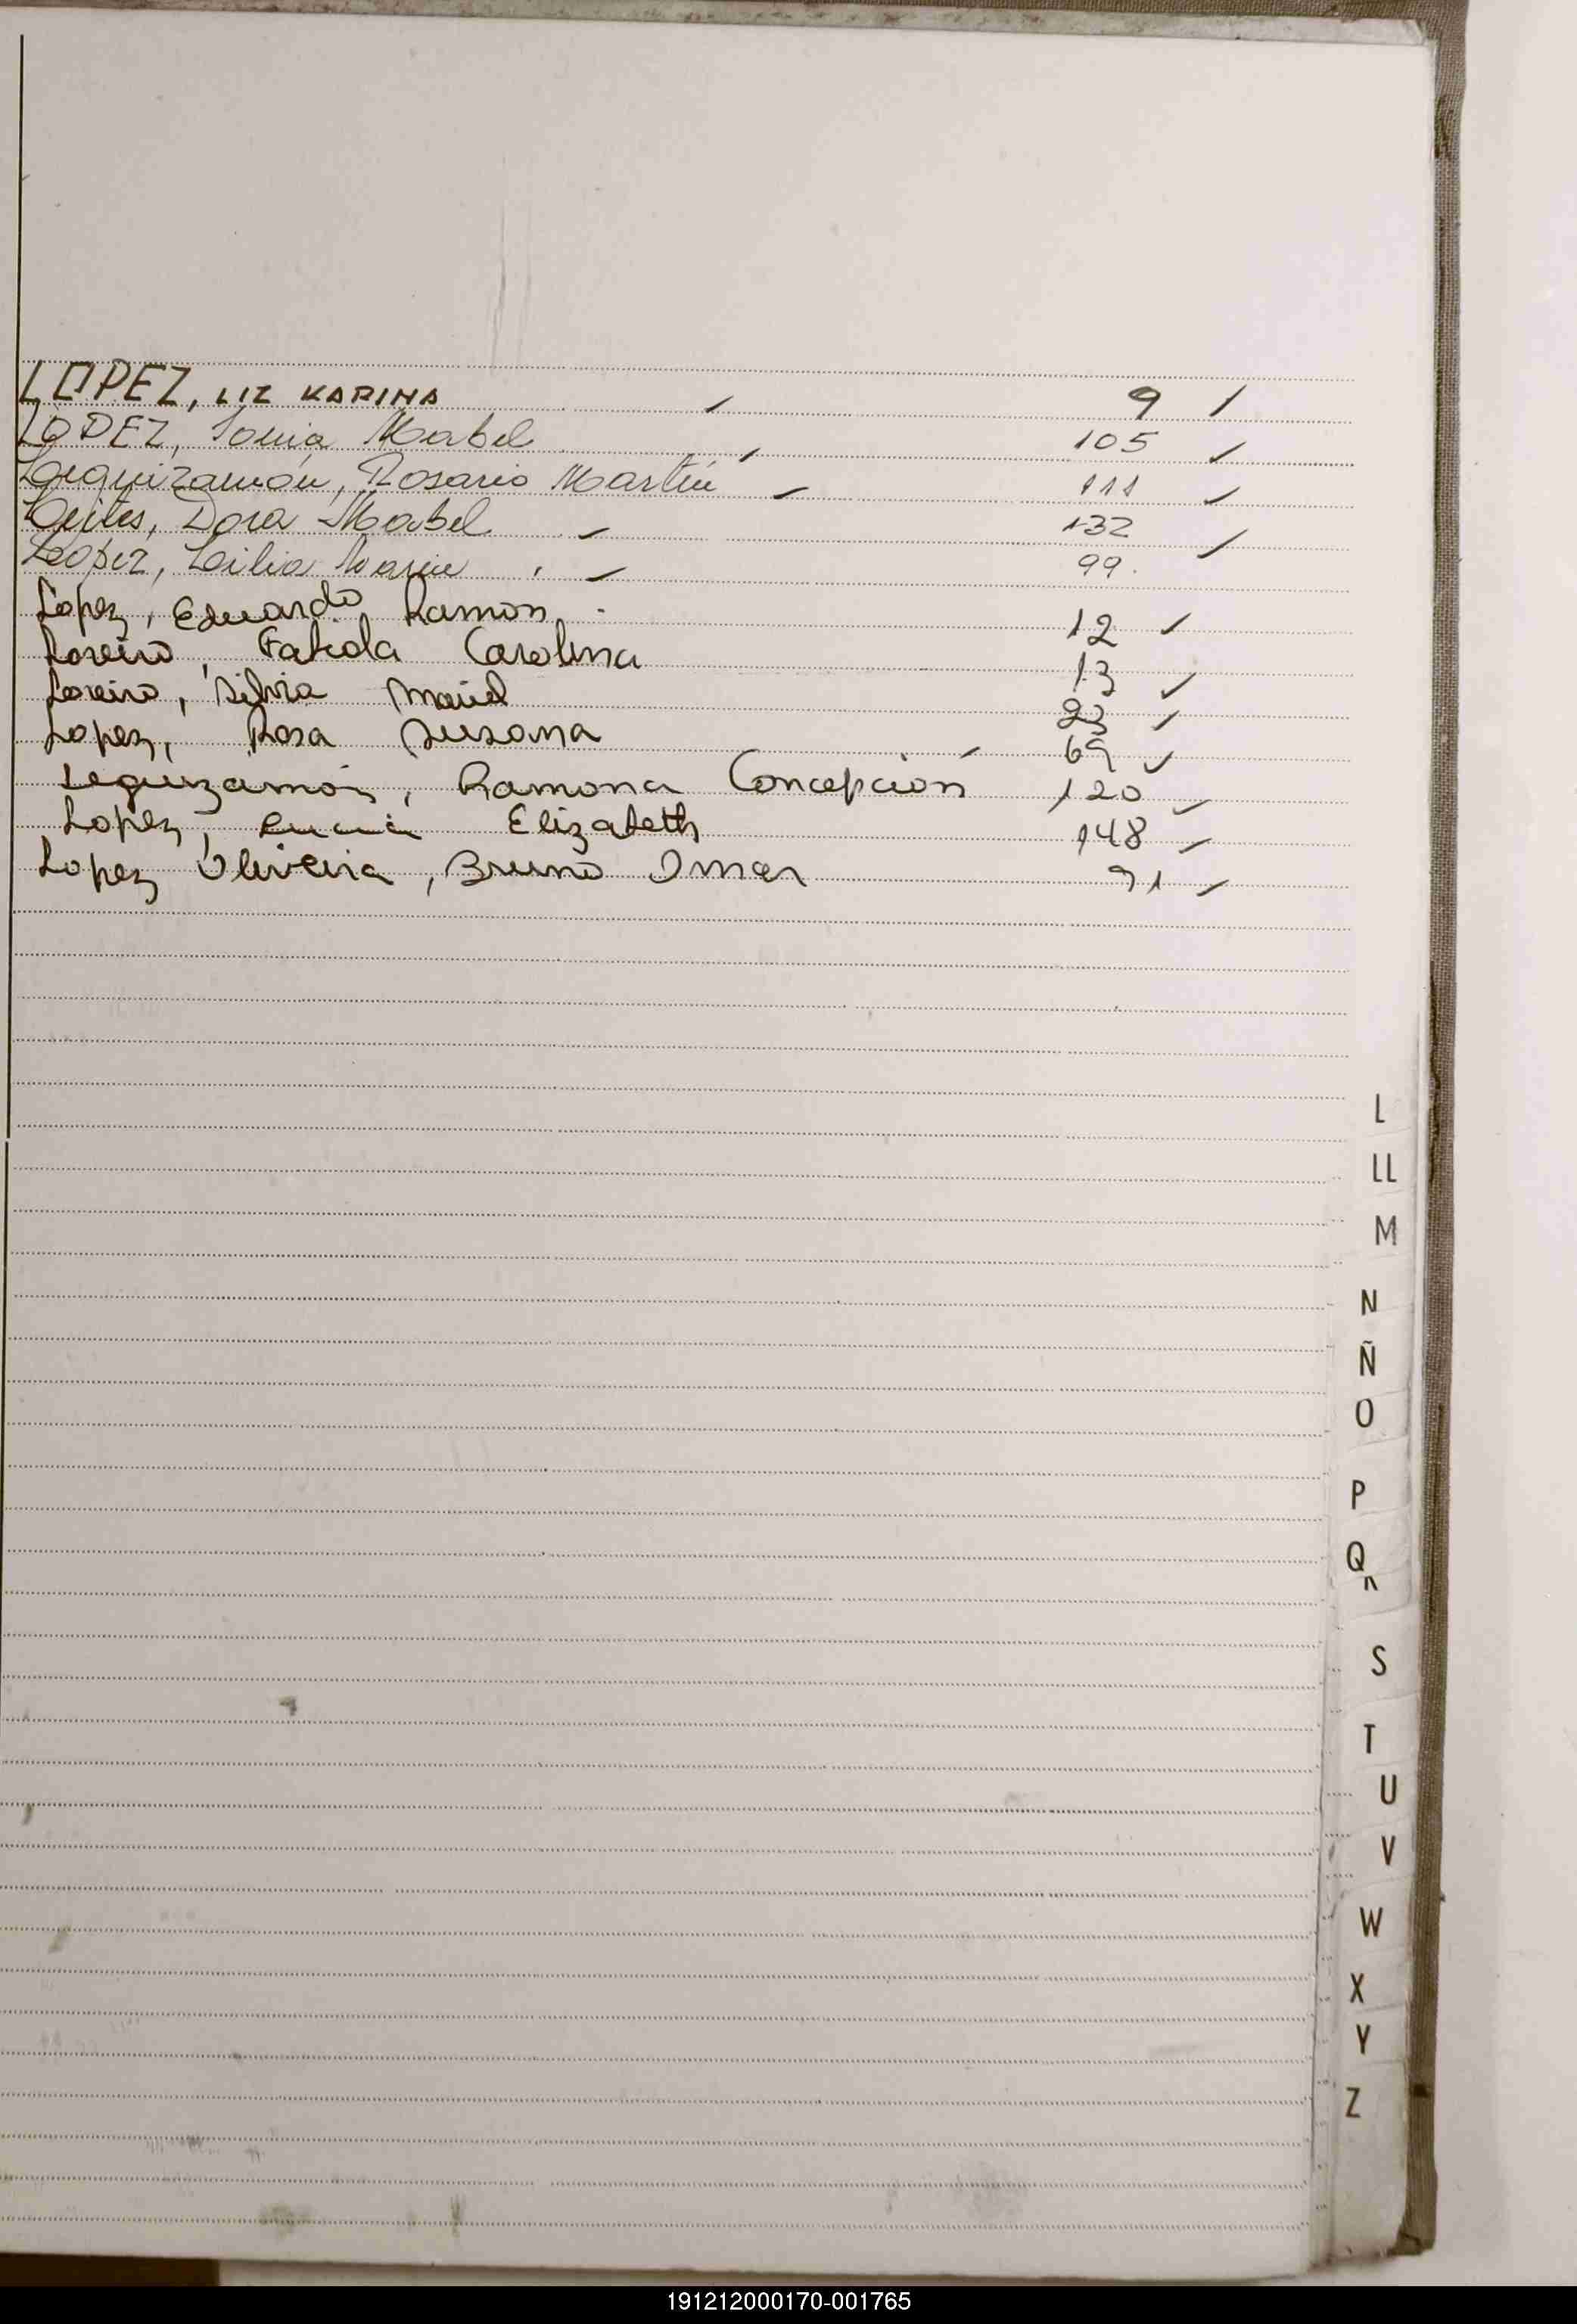 LOPEZ, LIZ KARINA 9
LOPEZ, Sonia Mabel 105
Leguizamón, Rosario Martín 111
Leites, Dora Mabel 132
Lopez, Lilia Marie 99
Lopez, Eduardo Ramon 12
Loreiro, Fabiola Carolina 13
Loreiro, Silvia Mariel 23
Lopez, Rosa Susana 69
Leguizamón, Ramona Concepción 120
Lopez, Elizabeth 148
Lopez Oliveira, Bruno Omar 91
L
LL
M
N
Ñ
O
P
Q
S
T
U
V
W
X
Y
Z
191212000170-001765